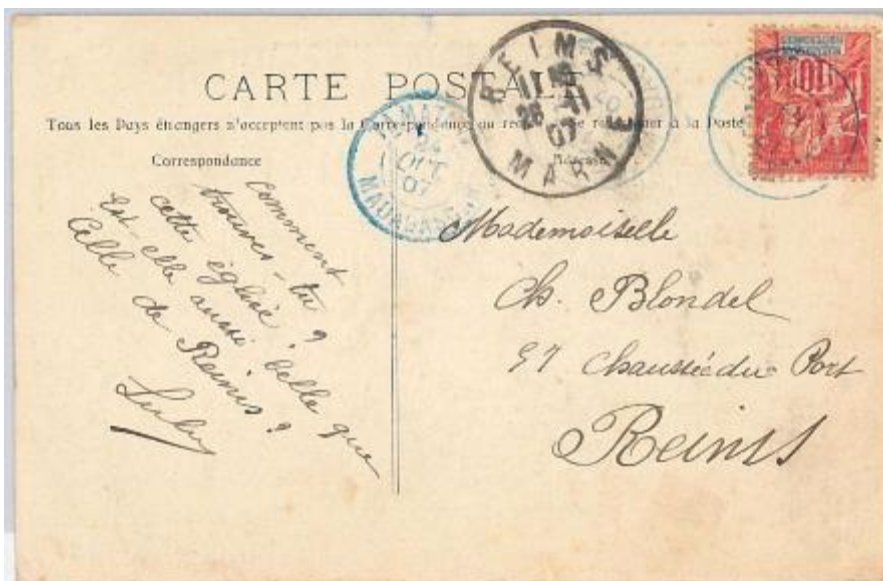 CARTE POSTALE
Tous les Pays étrangers n'acceptent pas la Correspondance au recto. Se renseigner à la Poste
Correspondance
Adresse
REIMS
11
26 -11
07
MARNE
OCT
07
MADAGASCAR
10
Comment
trouves-tu
cette église ?
Est-elle aussi belle que
Celle de Reims ?
Mademoiselle
Ch. Blondel
57 Chaussée du Port
Reims